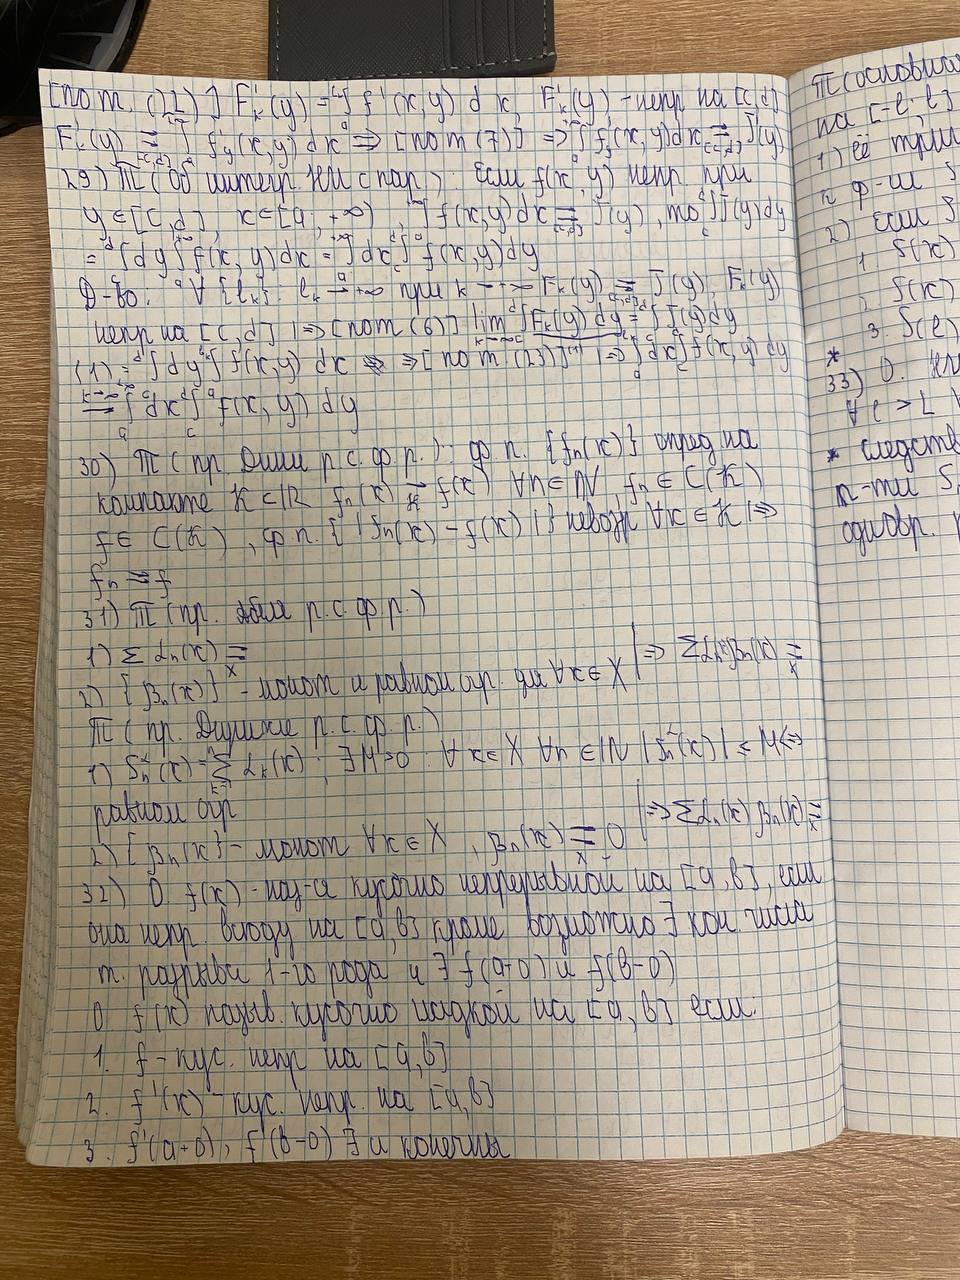 [по т. (22)] F'ₖ(y) = ∫ f'(x,y) dx, F'ₖ(y) - непр на [c,d]
F'ₖ(y) ⇉ ∫ f'y(x,y) dx ⇐ [по т (7)] ⇒ ∫ f'y(x,y) dx = J'(y)
29) П (об интегр НИ с пар): Если f(x,y) непр при
y∈[c,d], x∈[a;+∞), ∫ f(x,y)dx ⇉ J(y), то ∫ J(y)dy
= ∫dy∫f(x,y)dx = ∫dx∫f(x,y)dy
Д-во: ∀{ℓₖ}: ℓₖ→+∞ при k→+∞ Fₖ(y) ⇉ J(y), Fₖ(y)
непр на [c,d] |⇒ [по т (6)] lim ∫Fₖ(y)dy = ∫J(y)dy
(1) = ∫dy∫f(x,y)dx = [по т (23)] = ∫dx∫f(x,y)dy
= ∫dx∫f(x,y)dy
30) П (пр. Дини р.с.ф.п.): ф.п. {fn(x)} опред на
компакте K⊂ℝ fn(x) →ₖ f(x) ∀n∈ℕ fn∈C(K)
f∈C(K), ф.п. {|fn(x) - f(x)|} невозр ∀x∈K |⇒
fn ⇉ f
31) П (пр. Абеля р.с.ф.р.)
1) Σαn(x) ⇉ₓ
2) {βn(x)} - монот и равном огр. для ∀x∈X |⇒ Σαn(x)βn(x) ⇉ₓ
П (пр. Дирихле р.с.ф.р.)
1) Sn(x) = Σαk(x), ∃M>0: ∀x∈X ∀n∈ℕ |Sn(x)| ≤ M ⇔
равном огр
2) {βn(x)} - монот ∀x∈X, βn(x) ⇉ₓ 0 |⇒ Σαn(x)βn(x) ⇉ₓ
32) О f(x) - наз-а кусочно непрерывной на [a,b], если
она непр. всюду на [a,b] кроме возможно ∃ кон. числа
т. разрыва 1-го рода и ∃ f(a+0) и f(b-0)
О f(x) назыв. кусочно гладкой на [a,b] если:
1. f - кус. непр на [a,b]
2. f'(x) - кус. непр. на [a,b]
3. f'(a+0), f'(b-0) ∃ и конечны
П (основной
на [-ℓ; ℓ]
1) её три
ф-ии S
2) если S
1. S(x)
2. S(x)
3. S(ℓ)
*
33) О.
* следств
п-ти S
одновр.